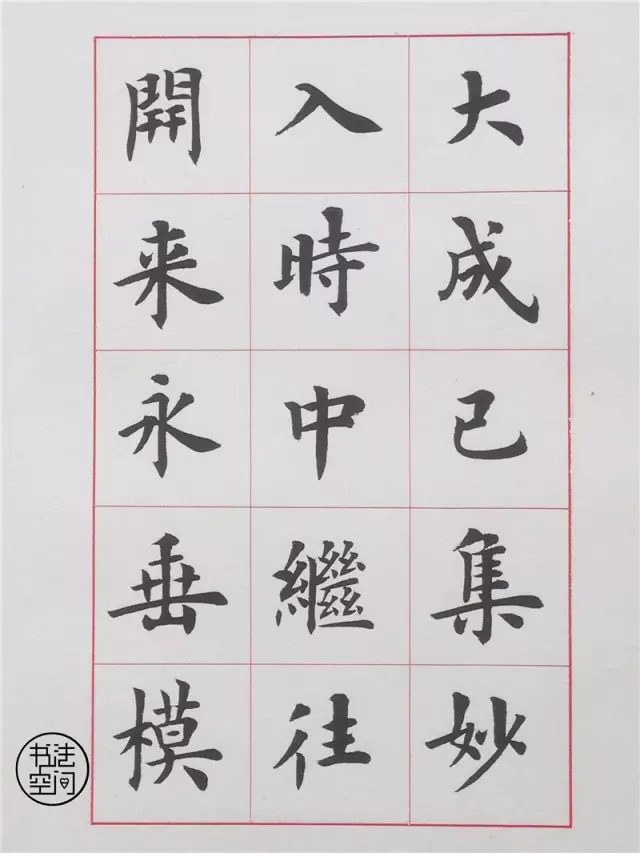 大成已集妙
入時中繼往
開来永垂模
书法
空间